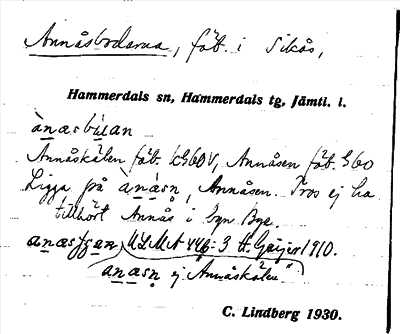 Annåsbodarna, fäb. i Sikås,
Hammerdals sn, Hammerdals tg, Jämtl. l.
ànæsbuan
Annåskälen fäb. LS60V, Annåsen fäb. S60
Ligga på ànåsn, Annåsen. Tros ej ha
tillhört Annås i byn Bye.
anæs ULMA 446:3 H. Geijer 1910.
anæsn ej "Annåskälen"
C. Lindberg 1930.